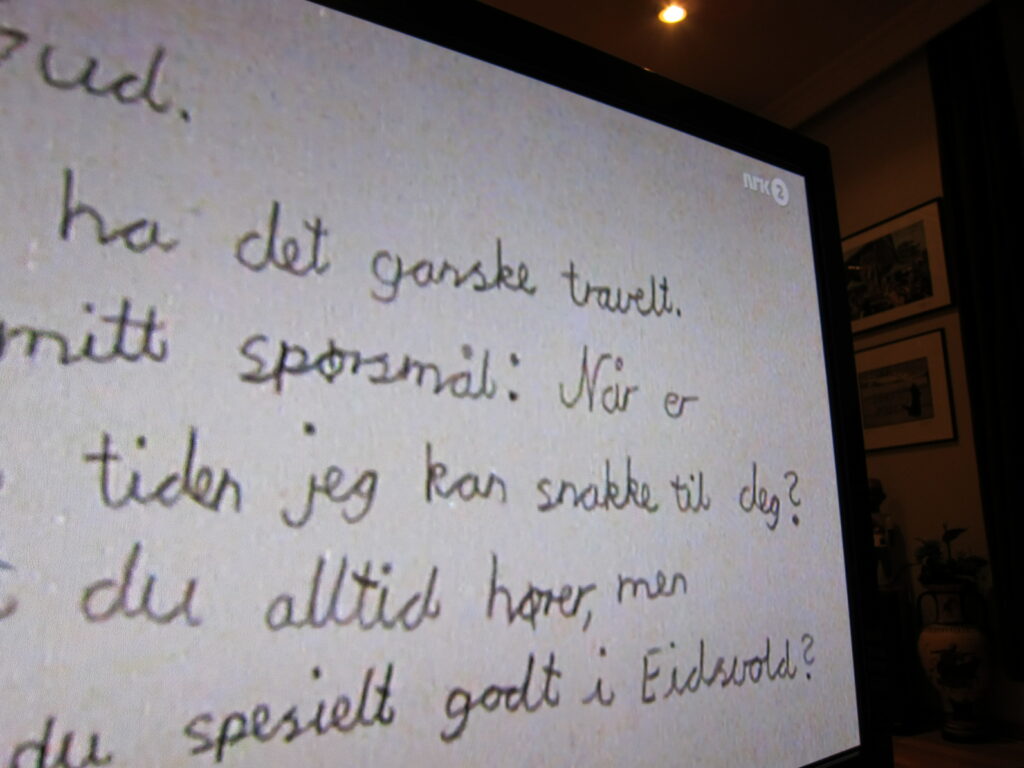 NRK2
ud.
ha det ganske travelt.
mitt spørsmål: Når er
tiden jeg kan snakke til deg?
du alltid hører, men
du spesielt godt i Eidsvold?